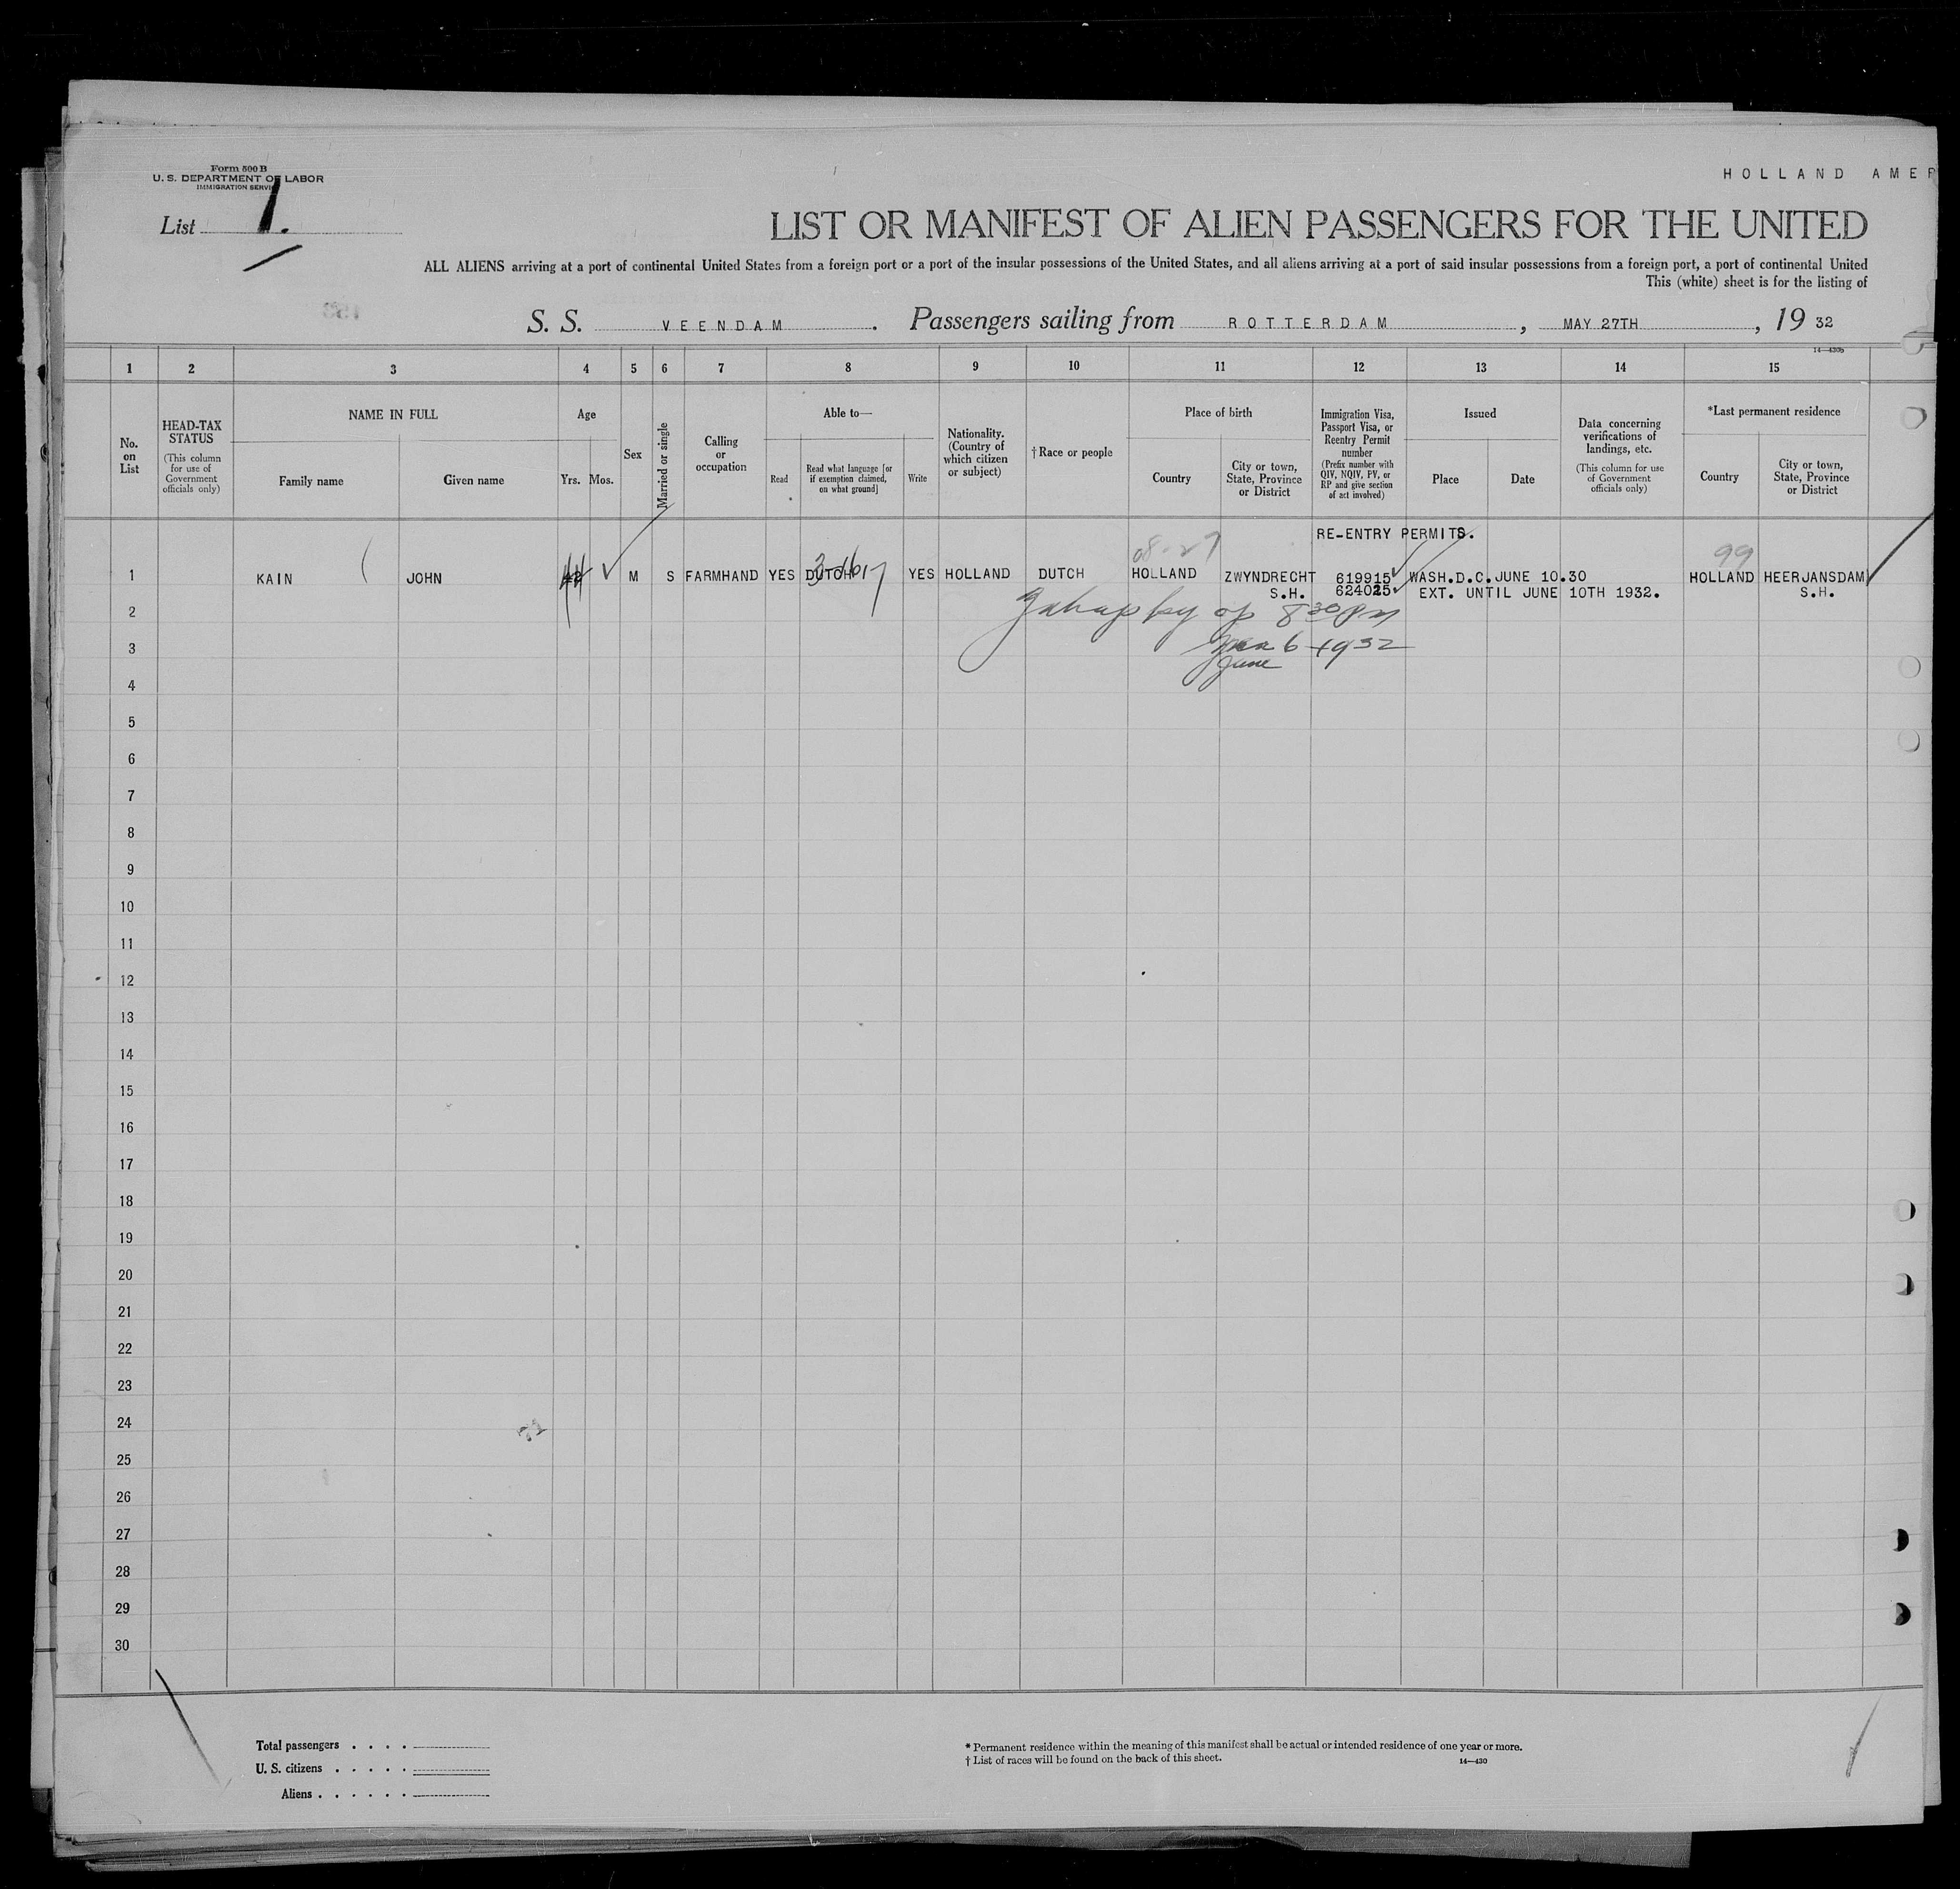 Form 500 B
U. S. DEPARTMENT OF LABOR
IMMIGRATION SERVICE
HOLLAND AMER
List 1.
LIST OR MANIFEST OF ALIEN PASSENGERS FOR THE UNITED
ALL ALIENS arriving at a port of continental United States from a foreign port or a port of the insular possessions of the United States, and all aliens arriving at a port of said insular possessions from a foreign port, a port of continental United
This (white) sheet is for the listing of
S. S. VEENDAM. Passengers sailing from ROTTERDAM, MAY 27TH, 19 32
14—430b
1 2 3 4 5 6 7 8 9 10 11 12 13 14 15
No. on List
HEAD-TAX STATUS
(This column for use of Government officials only)
NAME IN FULL
Family name
Given name
Age
Yrs. Mos.
Sex
Married or single
Calling or occupation
Able to—
Read
Read what language [or if exemption claimed, on what ground]
Write
Nationality. (Country of which citizen or subject)
† Race or people
Place of birth
Country
City or town, State, Province or District
Immigration Visa, Passport Visa, or Reentry Permit number
(Prefix number with QIV, NQIV, PV, or RP and give section of act involved)
Issued
Place
Date
Data concerning verifications of landings, etc.
(This column for use of Government officials only)
*Last permanent residence
Country
City or town, State, Province or District
RE-ENTRY PERMITS.
08-27
99
1 KAIN JOHN 44 M S FARMHAND YES DUTCH YES HOLLAND DUTCH HOLLAND ZWYNDRECHT 619915 WASH.D.C. JUNE 10.30 HOLLAND HEERJANSDAM
S.H. 624025 EXT. UNTIL JUNE 10TH 1932. S.H.
2
8 30 PM
3
6 1932
June
4
5
6
7
8
9
10
11
12
13
14
15
16
17
18
19
20
21
22
23
24
25
26
27
28
29
30
Total passengers . . . .
U. S. citizens . . . . .
Aliens . . . . . .
* Permanent residence within the meaning of this manifest shall be actual or intended residence of one year or more.
† List of races will be found on the back of this sheet.
14—430